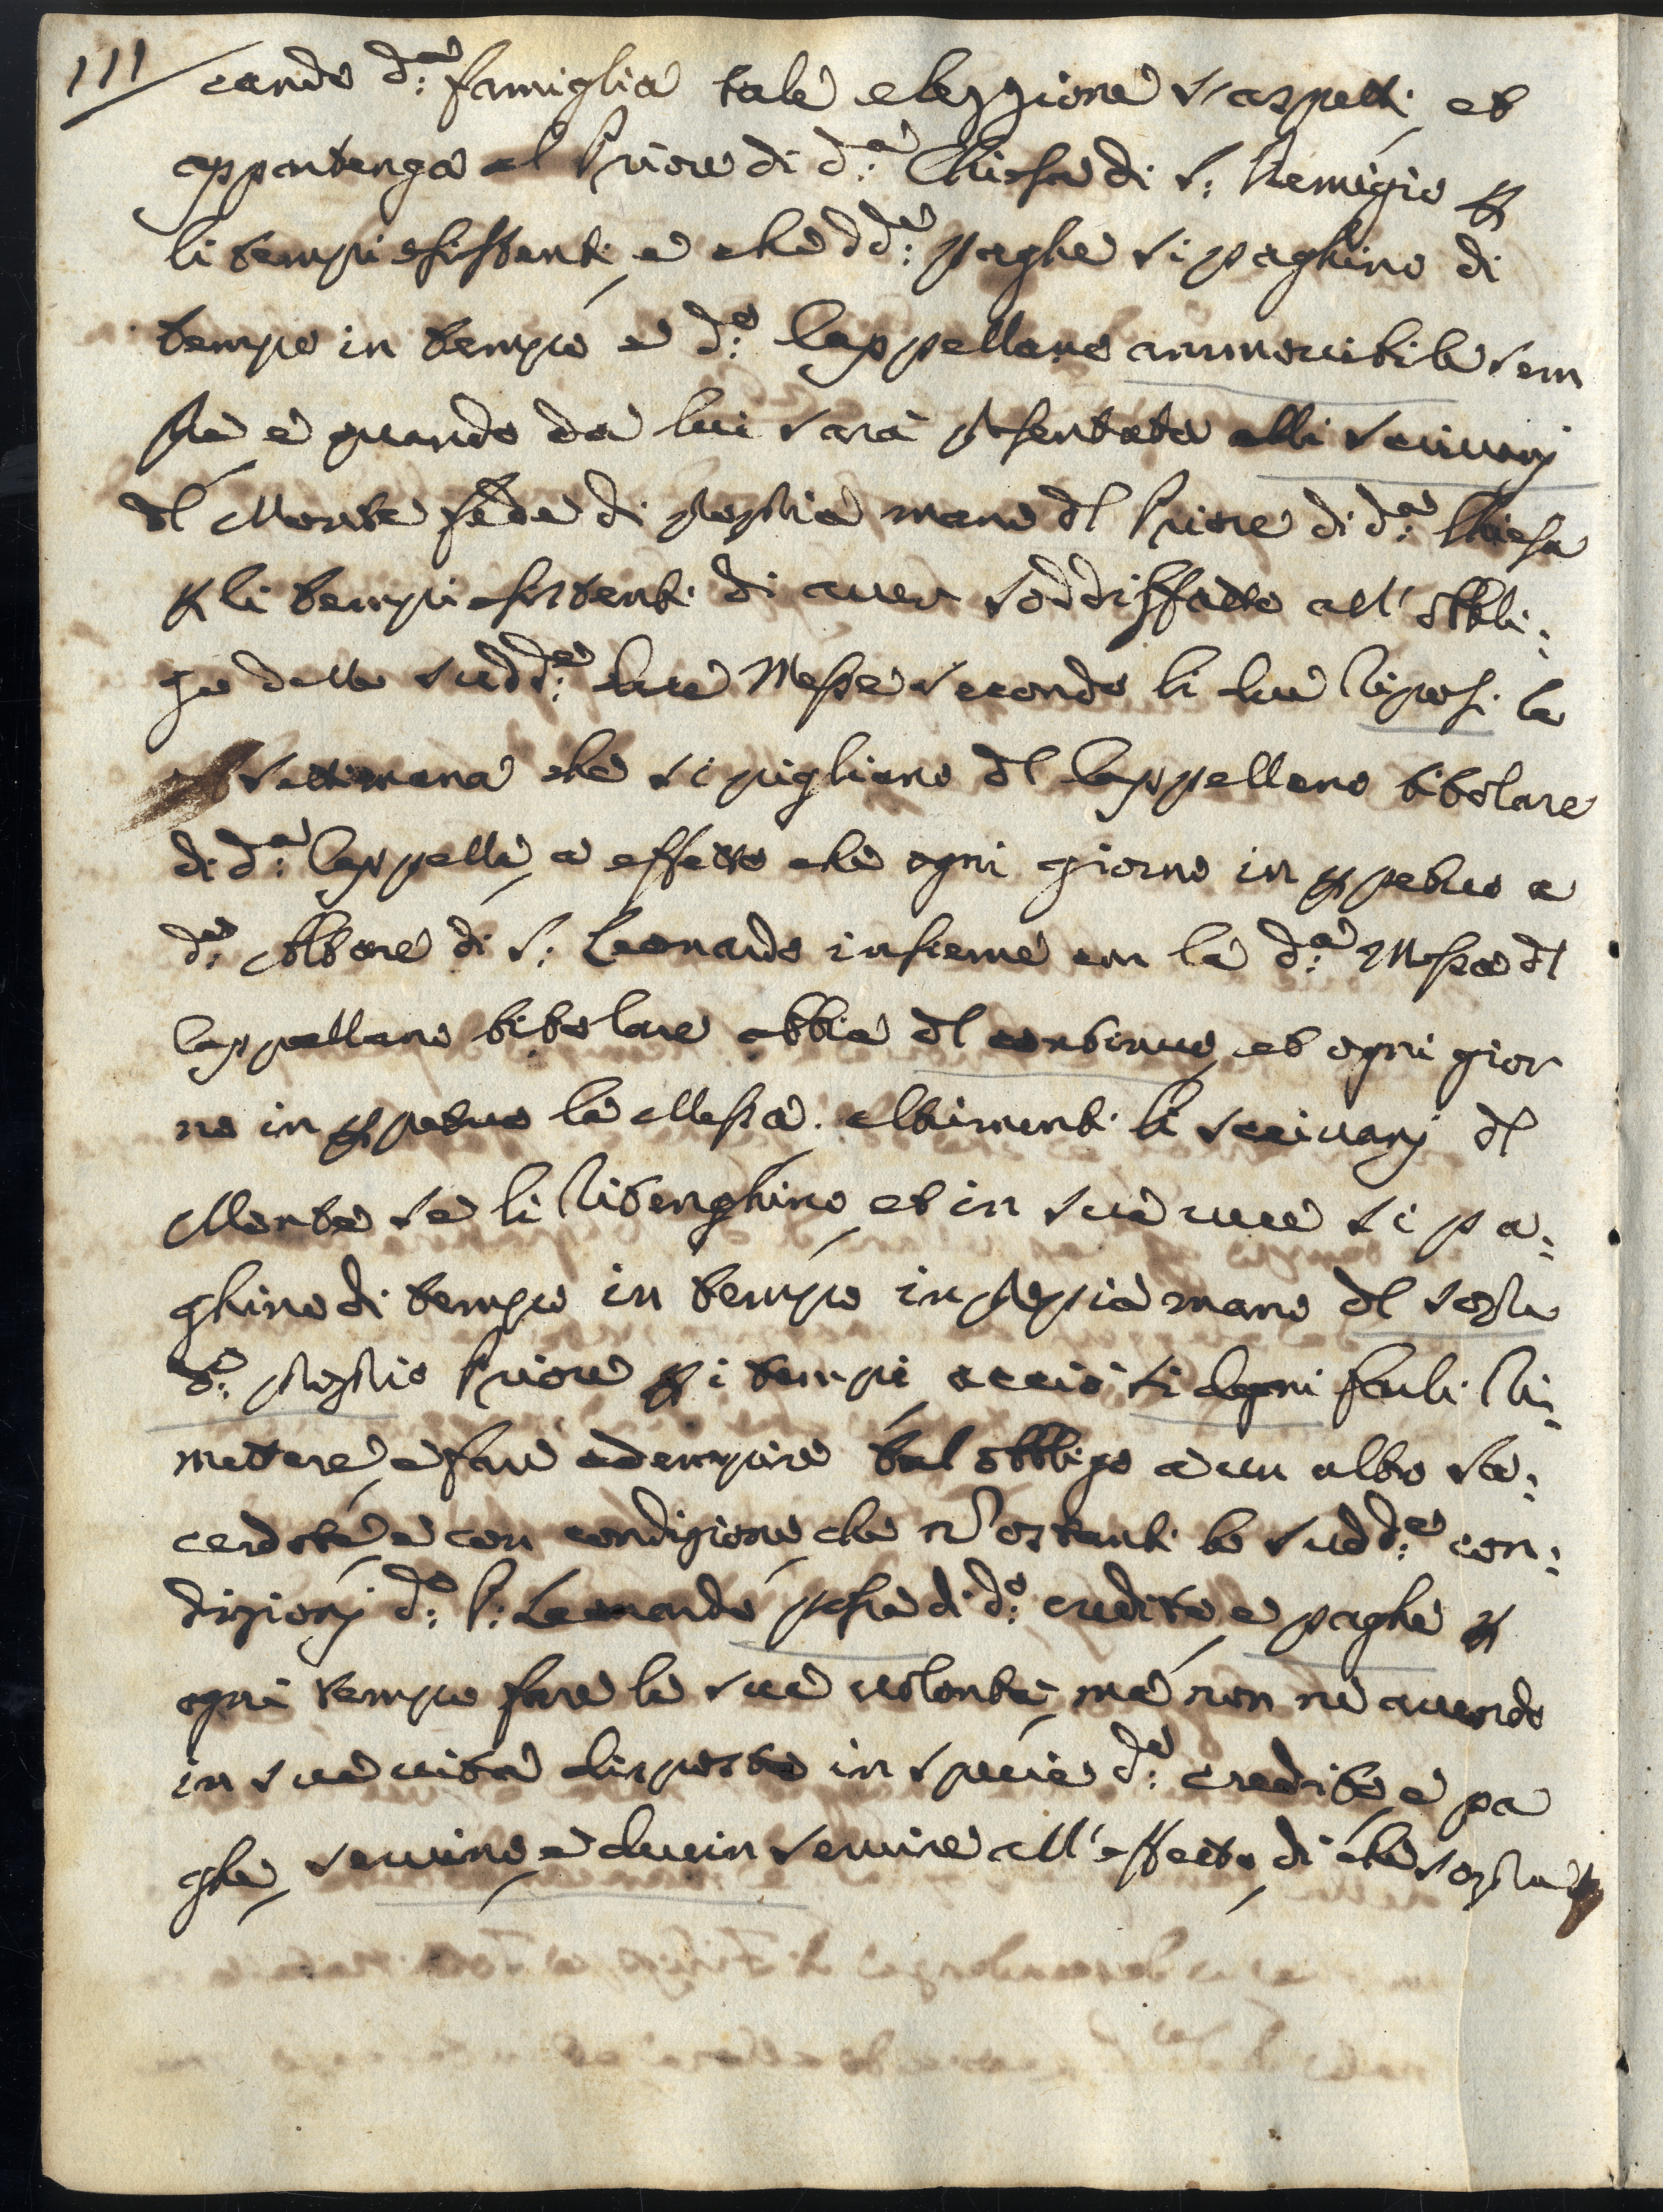 111
cando d:ª famiglia tale elezzione s'aspetti, et
appartenga al Priore di d:ª Chiesa di S: Remigio p
li tempi esistenti, e che dd:e paghe si paghino di
tempo in tempo a d:o Cappellano ammovibile sem
pre e quando da lui sarà presentata alli scrivanj
del Monte fede di propria mano del Priore di d:ª Chiesa
p li tempi esistenti di aver soddisfatto all' obbli:
go delle sudd:e due Messe secondo li due riposi la
settimana che si pigliano dal Cappellano titolare
di d:ª Cappella, a effetto che ogni giorno in ppetuo a
d:o Altare di S: Leonardo insieme con la d:ª Messa del
Cappellano titolare abbia del continuo, et ogni gior
no in ppetuo la Messa. altrimenti li scrivanj del
Monte se li ritenghino, et in sua vece si pa:
ghino di tempo in tempo in propria mano del sopra
d:o proprio Priore p i tempi, acciò si degni farli ri:
mettere, e fare adempire tal obbligo a un altro sa:
cerdote, e con condizione, che nō ostanti le sudd:e con:
dizionj d:o P: Leonardo possa di d:o credito, e paghe p
ogni tempo fare la sua volontà, mà non ne avendo
in sua vita disposto in specie d:o credito, e pa
ghe, servino, e devin servire all' effetto, di che sopra